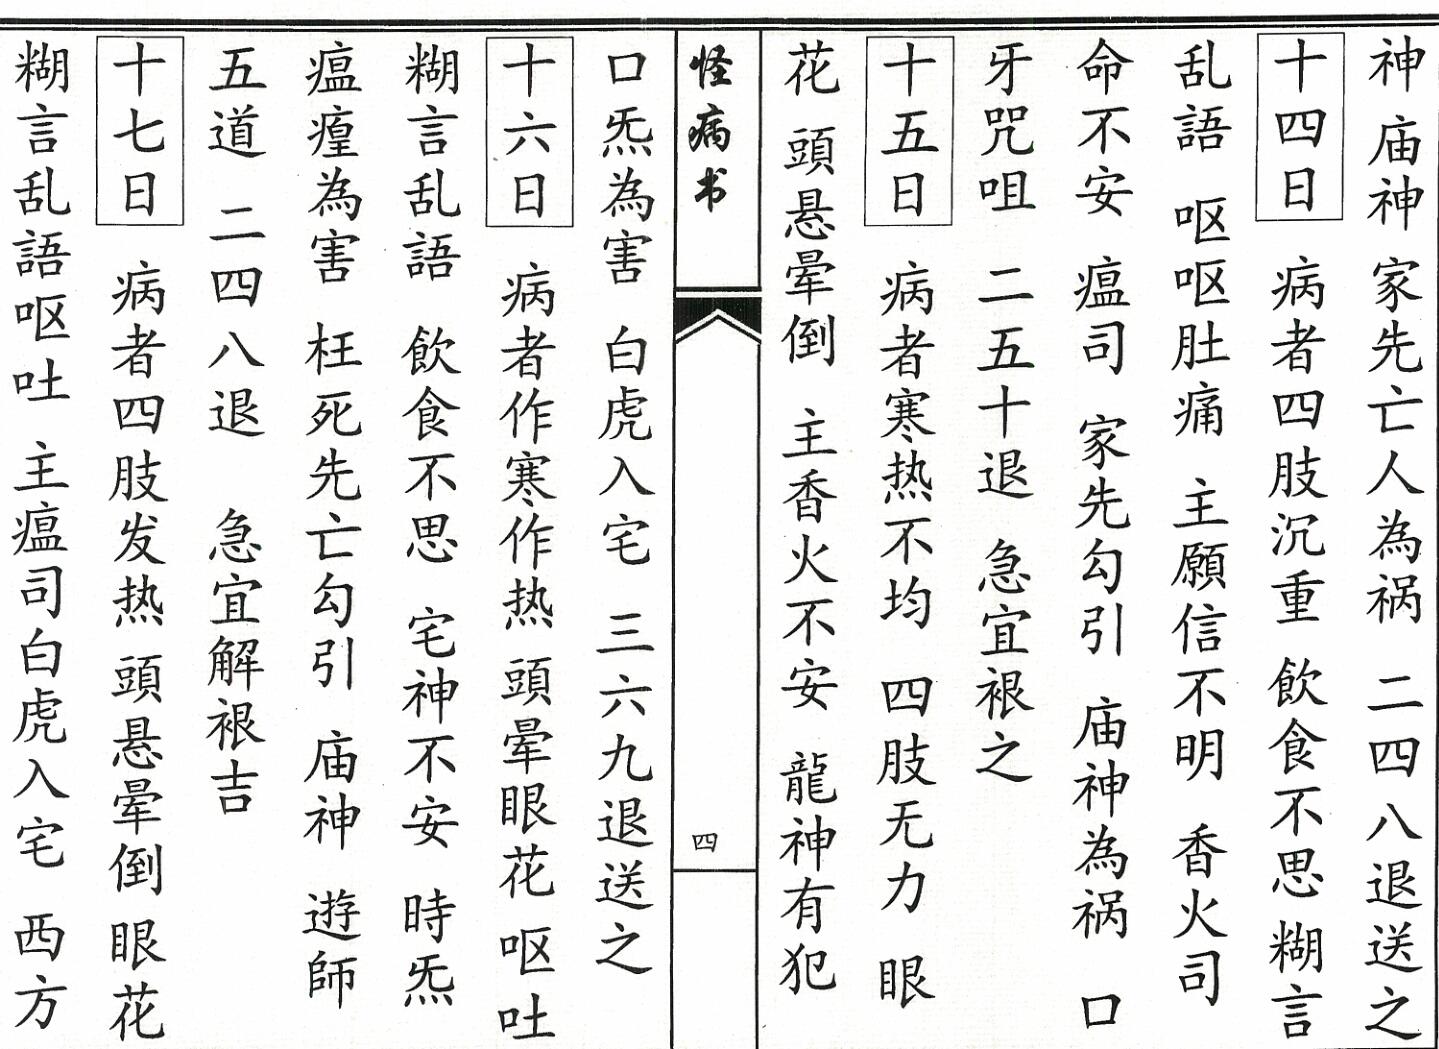 神庙神 家先亡人為祸 二四八退送之
十四日 病者四肢沉重 飲食不思 糊言
乱語 呕呕肚痛 主願信不明 香火司
命不安 瘟司 家先勾引 庙神為祸 口
牙咒咀 二五十退 急宜裉之
十五日 病者寒热不均 四肢无力 眼
花 頭悬晕倒 主香火不安 龍神有犯
怪病书
四
口炁為害 白虎入宅 三六九退送之
十六日 病者作寒作热 頭晕眼花 呕吐
糊言乱語 飲食不思 宅神不安 時炁
瘟瘟為害 枉死先亡勾引 庙神 遊師
五道 二四八退 急宜解裉吉
十七日 病者四肢发热 頭悬晕倒 眼花
糊言乱語呕吐 主瘟司白虎入宅 西方